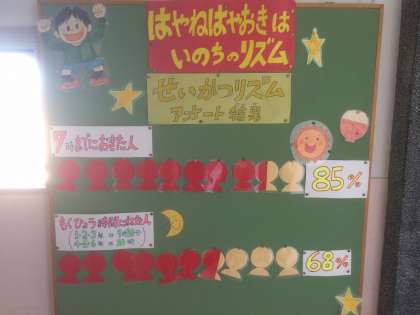 はやねはやおきは
いのちのリズム
せいかつリズム
アンケート結果
7時までにおきた人
85%
もくひょう時間にねた人
68%